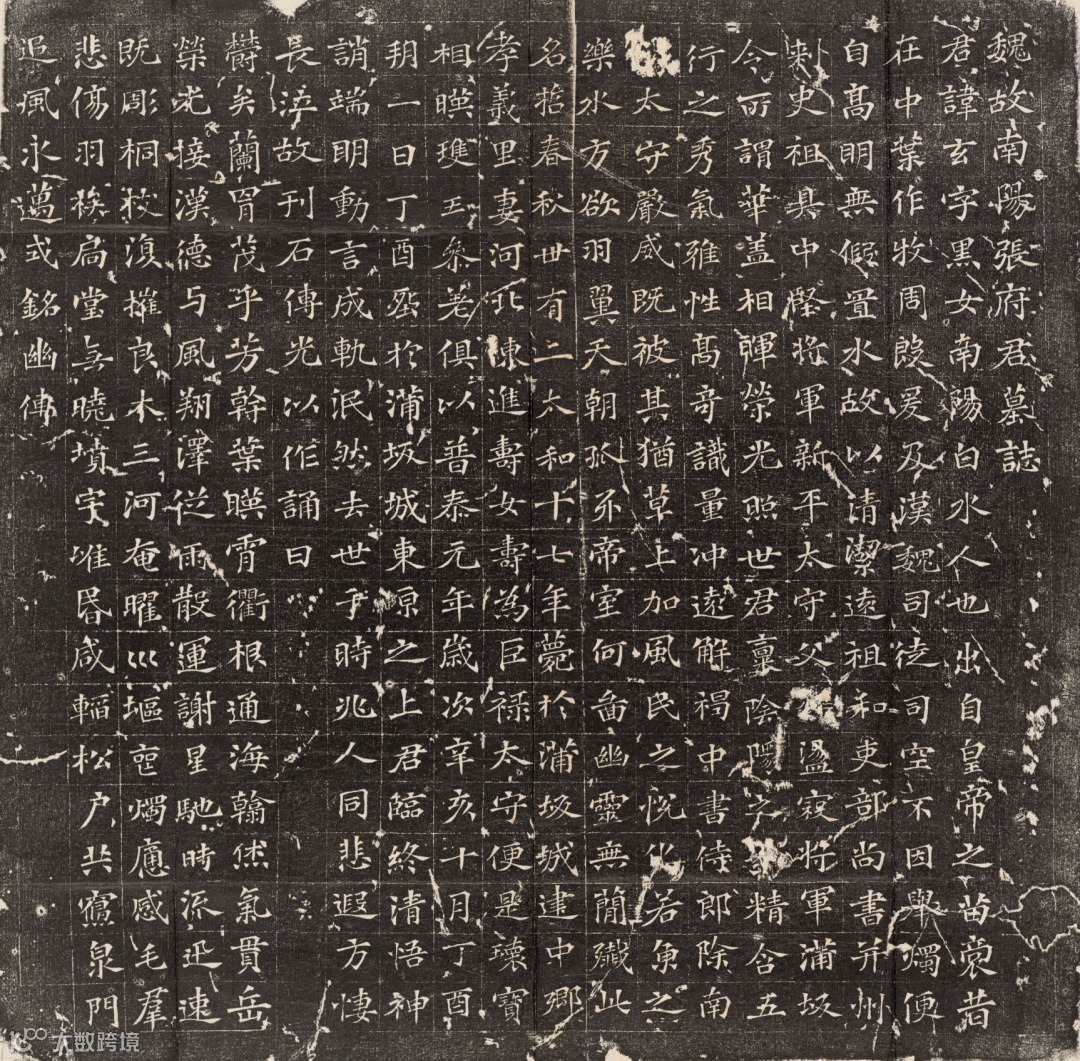 魏故南陽張府君墓誌
君諱玄字黑女南陽白水人也出自皇帝之苗裔昔
在中葉作牧周殷爰及漢魏司徒司空不因舉燭便
自高明無假置水故以清潔遠祖和吏部尚書并州
刺史祖具中堅將軍新平太守父盪寇將軍蒲坂
令所謂華盖相暉榮光照世君稟陰陽之精含五
行之秀氣雅性高奇識量冲遠解褐中書侍郎除南
太守嚴威既被其猶草上加風民之悅化若魚之
樂水方欲羽翼天朝抓牙帝室何啚幽靈無簡殲此
名哲春秋卅有二太和十七年薨於蒲坂城建中鄉
孝義里妻河北陳進壽女壽為巨祿太守便是瓌寶
相暎瓊玉參差俱以普泰元年歲次辛亥十月丁酉
朔一日丁酉塟於蒲坂城東原之上君臨終清悟神
誚端明動言成軌泯然去世于時兆人同悲遐方悽
長泣故刊石傳光以作誦曰
欝矣蘭胄茂乎芳幹葉暎霄衢根通海翰休氣貫岳
榮光接漢德与風翔澤從雨散運謝星馳時流迅速
既彫桐枝復摧良木三河奄曜巛塸燭應感毛羣
悲傷羽族扃堂無曉墳宇唯昏咸輻松户共寢泉門
追風永邁式銘幽傳
大数跨境